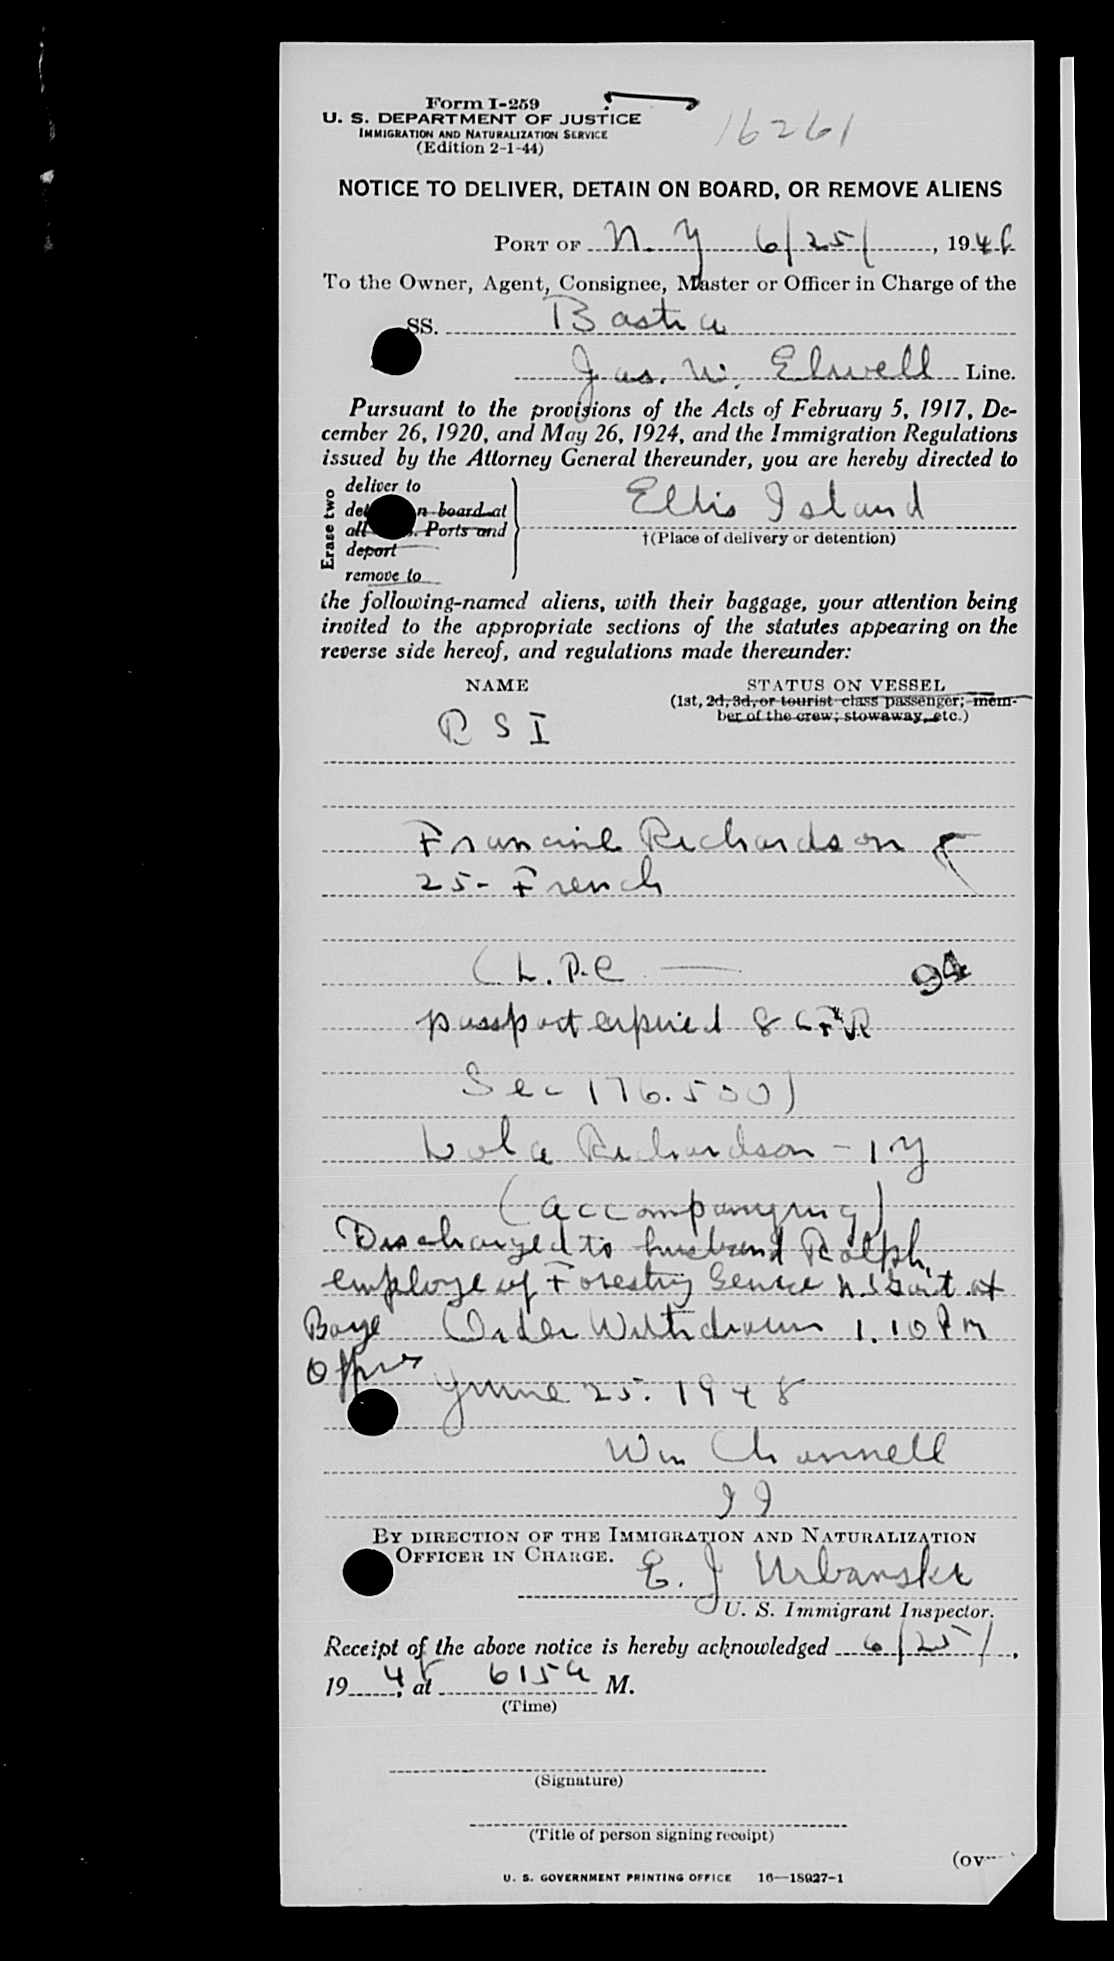 Form I-259
U. S. DEPARTMENT OF JUSTICE
IMMIGRATION AND NATURALIZATION SERVICE
(Edition 2-1-44)
16261
NOTICE TO DELIVER, DETAIN ON BOARD, OR REMOVE ALIENS
PORT OF N. Y 6/25/, 1948
To the Owner, Agent, Consignee, Master or Officer in Charge of the
SS. Bastia
Jas. W. Elwell Line.
Pursuant to the provisions of the Acts of February 5, 1917, De-
cember 26, 1920, and May 26, 1924, and the Immigration Regulations
issued by the Attorney General thereunder, you are hereby directed to
Erase two
deliver to
n board at
all Ports and
deport
remove to
Ellis Island
†(Place of delivery or detention)
the following-named aliens, with their baggage, your attention being
invited to the appropriate sections of the statutes appearing on the
reverse side hereof, and regulations made thereunder:
NAME STATUS ON VESSEL
(1st, 2d, 3d, or tourist class passenger; mem-
ber of the crew; stowaway, etc.)
B S I
Francine Richardson
25- French
(L. P. C — 94
passport expired 8 CFR
Sec 176.500)
Lola Richardson - 1 Y
(accompanying)
Discharged to husband Ralph,
employe of Forestry Service U.S Govt. at
Barge Order Withdrawn 1.10 PM
Office
June 25. 1948
Wm Channell
I I
BY DIRECTION OF THE IMMIGRATION AND NATURALIZATION
OFFICER IN CHARGE.
E. J Urbanski
U. S. Immigrant Inspector.
Receipt of the above notice is hereby acknowledged 6/25/,
1948, at 615a M.
(Time)
(Signature)
(Title of person signing receipt)
(ov
U. S. GOVERNMENT PRINTING OFFICE 16—18927-1